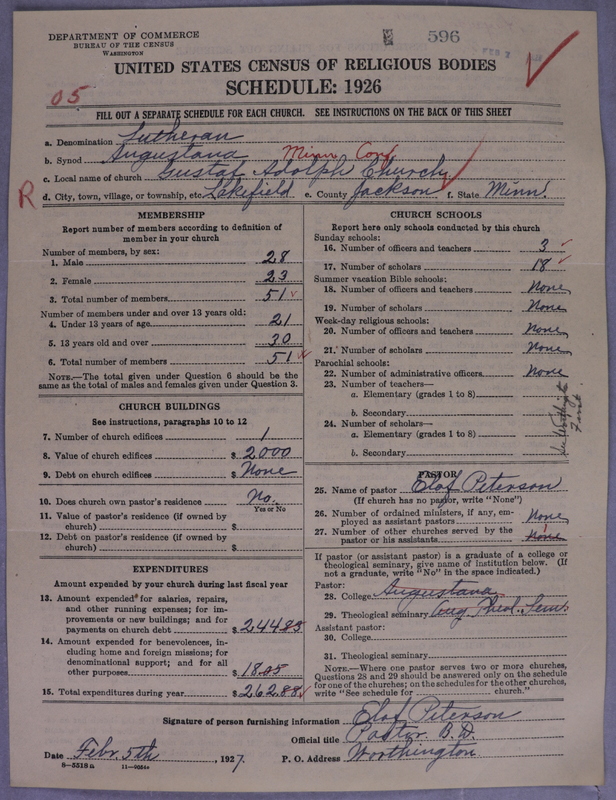 DEPARTMENT OF COMMERCE
BUREAU OF THE CENSUS
WASHINGTON
596
FEB 2
UNITED STATES CENSUS OF RELIGIOUS BODIES
SCHEDULE: 1926
05
FILL OUT A SEPARATE SCHEDULE FOR EACH CHURCH. SEE INSTRUCTIONS ON THE BACK OF THIS SHEET
a. Denomination Lutheran
b. Synod Augustana Minn Conf
c. Local name of church Gustaf Adolph Church
R
d. City, town, village, or township, etc. Lakefield e. County Jackson f. State Minn.
MEMBERSHIP
Report number of members according to definition of
member in your church
Number of members, by sex:
1. Male 28
2. Female 23
3. Total number of members 51
Number of members under and over 13 years old:
4. Under 13 years of age 21
5. 13 years old and over 30
6. Total number of members 51
NOTE.—The total given under Question 6 should be the
same as the total of males and females given under Question 3.
CHURCH BUILDINGS
See instructions, paragraphs 10 to 12
7. Number of church edifices 1
8. Value of church edifices $ 2000
9. Debt on church edifices $ None
10. Does church own pastor's residence No.
Yes or No
11. Value of pastor's residence (if owned by
church) $
12. Debt on pastor's residence (if owned by
church) $
EXPENDITURES
Amount expended by your church during last fiscal year
13. Amount expended for salaries, repairs,
and other running expenses; for im-
provements or new buildings; and for
payments on church debt $ 244.83
14. Amount expended for benevolences, in-
cluding home and foreign missions; for
denominational support; and for all
other purposes $ 18.05
15. Total expenditures during year $ 262.88
CHURCH SCHOOLS
Report here only schools conducted by this church
Sunday schools:
16. Number of officers and teachers 3
17. Number of scholars 18
Summer vacation Bible schools:
18. Number of officers and teachers None
19. Number of scholars None
Week-day religious schools:
20. Number of officers and teachers None
21. Number of scholars None
Parochial schools:
22. Number of administrative officers None
23. Number of teachers—
a. Elementary (grades 1 to 8)
b. Secondary
24. Number of scholars—
a. Elementary (grades 1 to 8)
b. Secondary
See Worthington
PASTOR
25. Name of pastor Elof Peterson
(If church has no pastor, write "None")
26. Number of ordained ministers, if any, em-
ployed as assistant pastors None
27. Number of other churches served by the
pastor or his assistants None 1
If pastor (or assistant pastor) is a graduate of a college or
theological seminary, give name of institution below. (If
not a graduate, write "No" in the space indicated.)
Pastor:
28. College Augustana
29. Theological seminary Aug. Theol. Sem.
Assistant pastor:
30. College
31. Theological seminary
NOTE.—Where one pastor serves two or more churches,
Questions 28 and 29 should be answered only on the schedule
for one of the churches; on the schedules for the other churches,
write "See schedule for church."
Signature of person furnishing information Elof Peterson
Official title Pastor B.D.
Date Febr. 5th, 1927. P. O. Address Worthington
8—5518a 11—9664